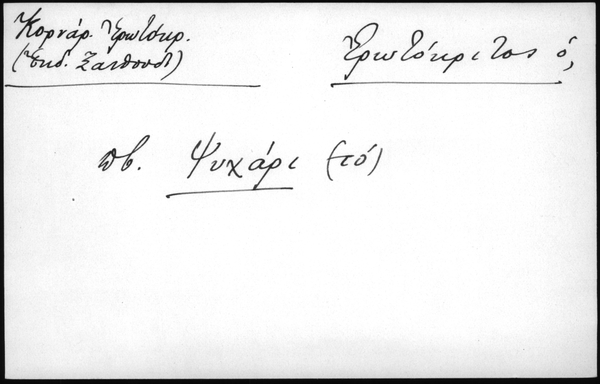 Κορνάρ. Ἐρωτόκρ.
(Ἔκδ. Ξανθουδ)
Ἐρωτόκριτος ὁ,
πβ. Ψυχάρι (τό)